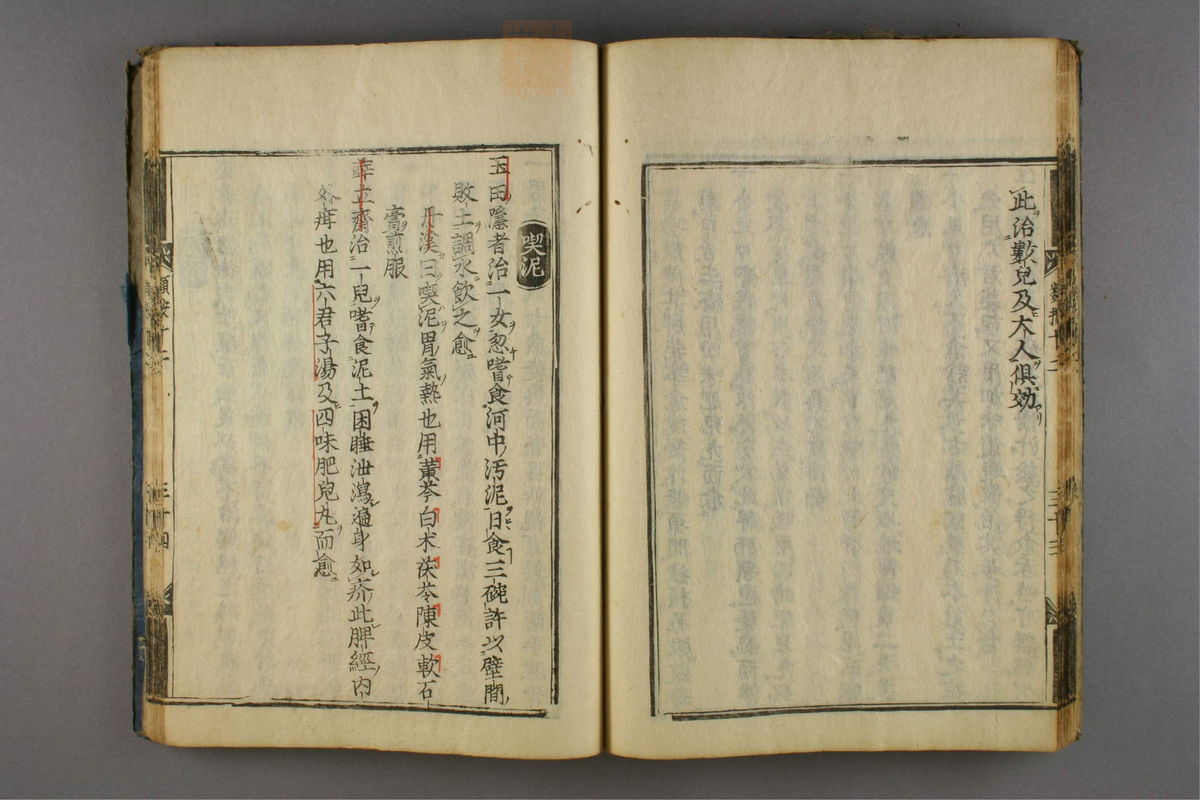 此治數兒及大人俱効
喫泥
玉田隱者治一女忽嗜食河中汚泥日食三碗許以壁間
敗土調水飲之愈
丹溪曰喫泥胃氣熱也用黃芩白朮茯苓陳皮軟石
膏煎服
薛立齋治一兒嗜食泥土困睡泄瀉遍身如疥此脾經內
外疳也用六君子湯及四味肥兒丸而愈